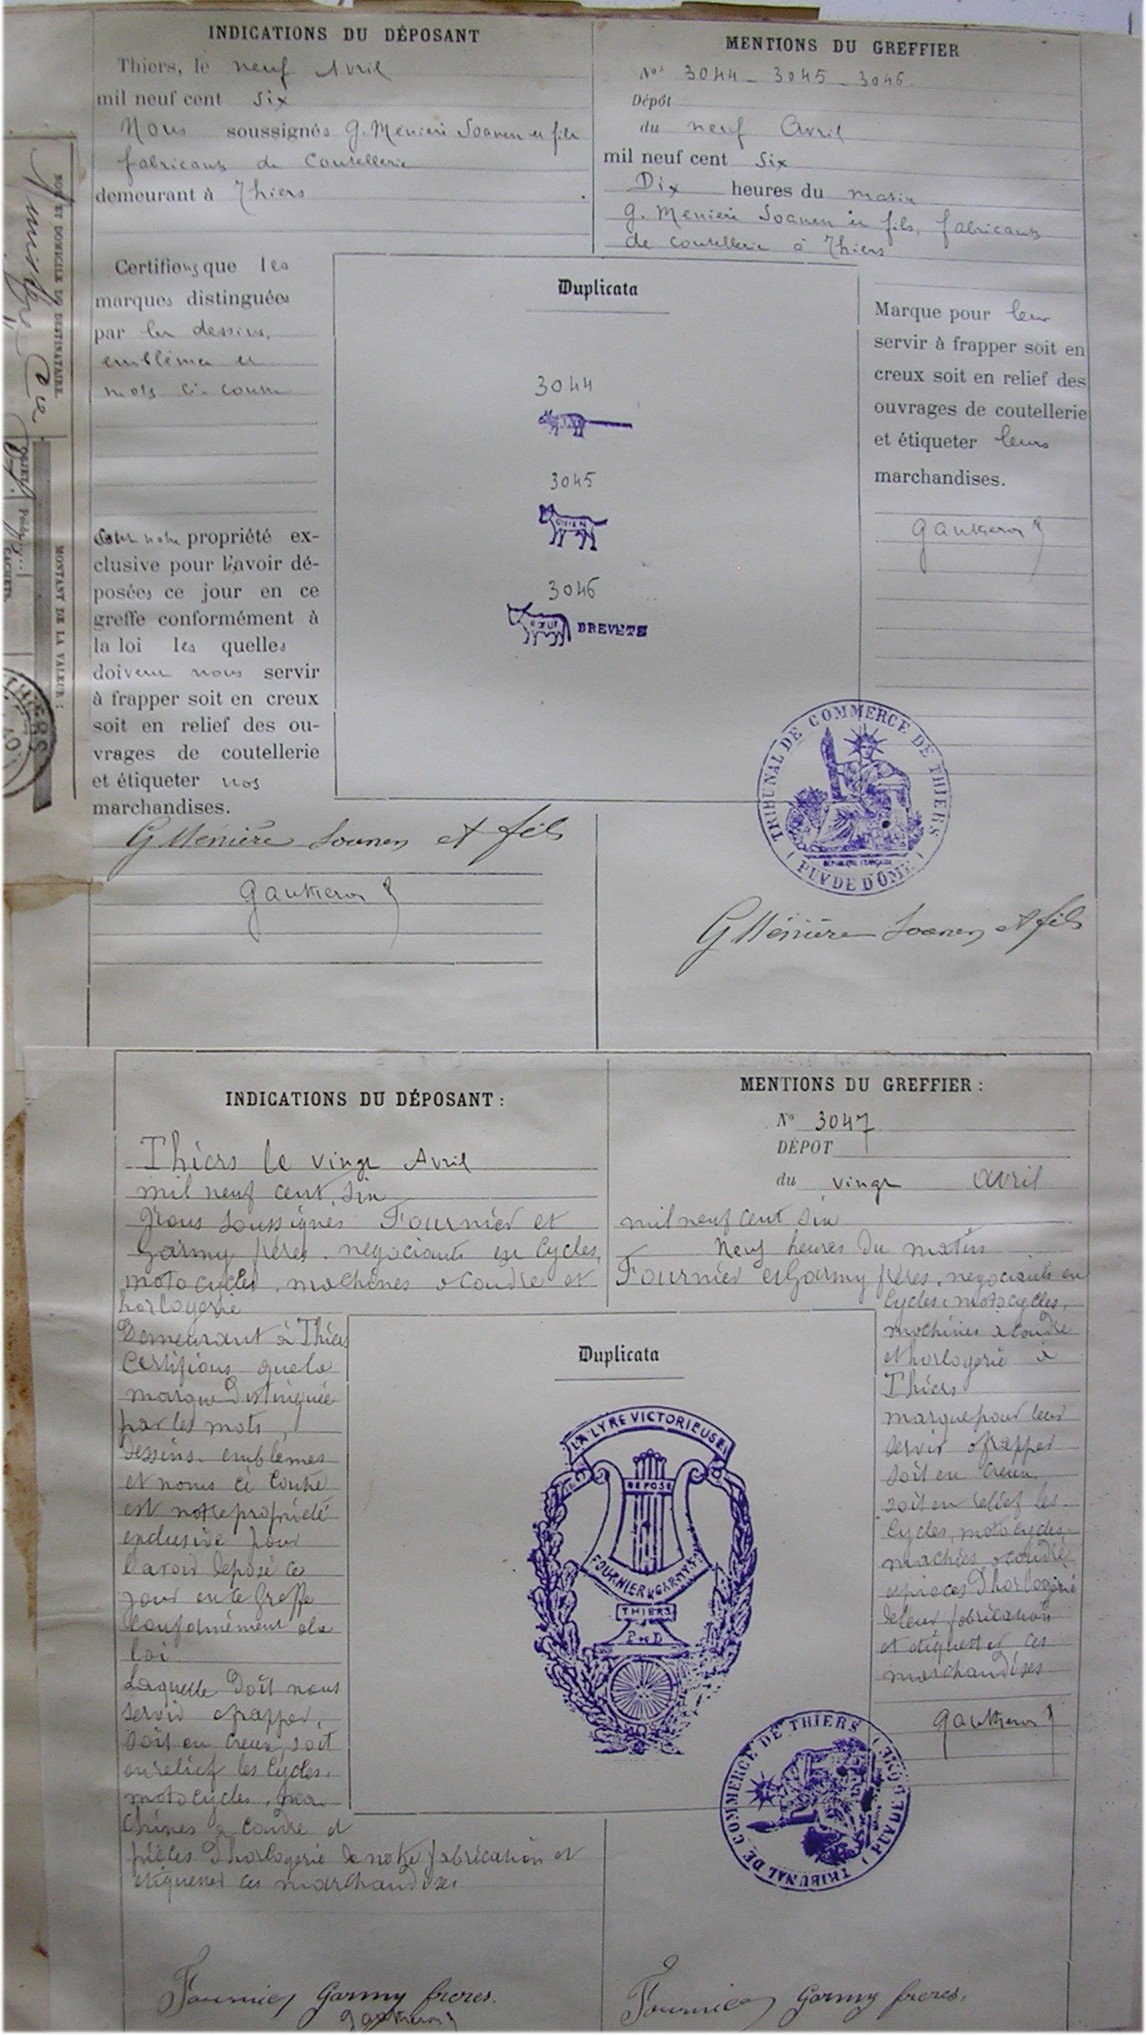 INDICATIONS DU DÉPOSANT
Thiers, le neuf Avril
mil neuf cent six
Nous soussignés G. Menière Soanen et fils
fabricants de Coutellerie
demeurant à Thiers
Certifions que les
marques distinguées
par les dessins,
emblèmes et
mots ci-contre
notre propriété ex-
clusive pour l'avoir dé-
posées ce jour en ce
greffe conformément à
la loi les quelles
doivent nous servir
à frapper soit en creux
soit en relief des ou-
vrages de coutellerie
et étiqueter nos
marchandises.
G Ménière Soanen et fils
MENTIONS DU GREFFIER
Nos 3044 - 3045 - 3046
Dépôt
du neuf Avril
mil neuf cent six
Dix heures du matin
G. Menière Soanen et fils, fabricants
de coutellerie à Thiers
Duplicata
3044
3045
CHIEN
3046
BŒUF BREVETÉ
Marque pour leur
servir à frapper soit en
creux soit en relief des
ouvrages de coutellerie
et étiqueter leurs
marchandises.
TRIBUNAL DE COMMERCE DE THIERS
RÉPUBLIQUE FRANÇAISE
( PUY DE DÔME )
G Ménière Soanen et fils
NOM ET DOMICILE DU DESTINATAIRE.
MONTANT DE LA VALEUR :
THIERS
INDICATIONS DU DÉPOSANT :
Thiers le vingt Avril
mil neuf cent six
Nous soussignés Fournier et
Garmy frères, negociants en cycles,
motocycles, machines à coudre et
horlogerie
Demeurant à Thiers
Certifions que la
marque distinguée
par les mots,
dessins, emblèmes
et noms ci contre
est notre propriété
exclusive pour
l'avoir déposé ce
jour en ce Greffe
conformément à la
loi
Laquelle doit nous
servir à frapper,
soit en creux, soit
en relief les cycles,
motocycles, ma
chines à coudre et
pièces d'horlogerie de notre fabrication et
étiqueter ces marchandises
Fournier Garmy freres.
MENTIONS DU GREFFIER :
No 3047
DÉPOT
du vingt avril
mil neuf cent six
Neuf heures du matin
Fournier et Garmy frères, negociants en
cycles, motocycles,
machines à coudre
et horlogerie à
Thiers
marque pour leur
servir à frapper
soit en creux
soit en relief les
cycles, motocycles,
machines à coudre
et pièces d'horlogerie
de leur fabrication
et étiqueter ces
marchandises
Duplicata
LA LYRE VICTORIEUSE
DEPOSÉ
FOURNIER & GARMY FRES
THIERS
P. DE D.
TRIBUNAL DE COMMERCE DE THIERS
( PUY DE DÔME )
Fournier Garmy freres.